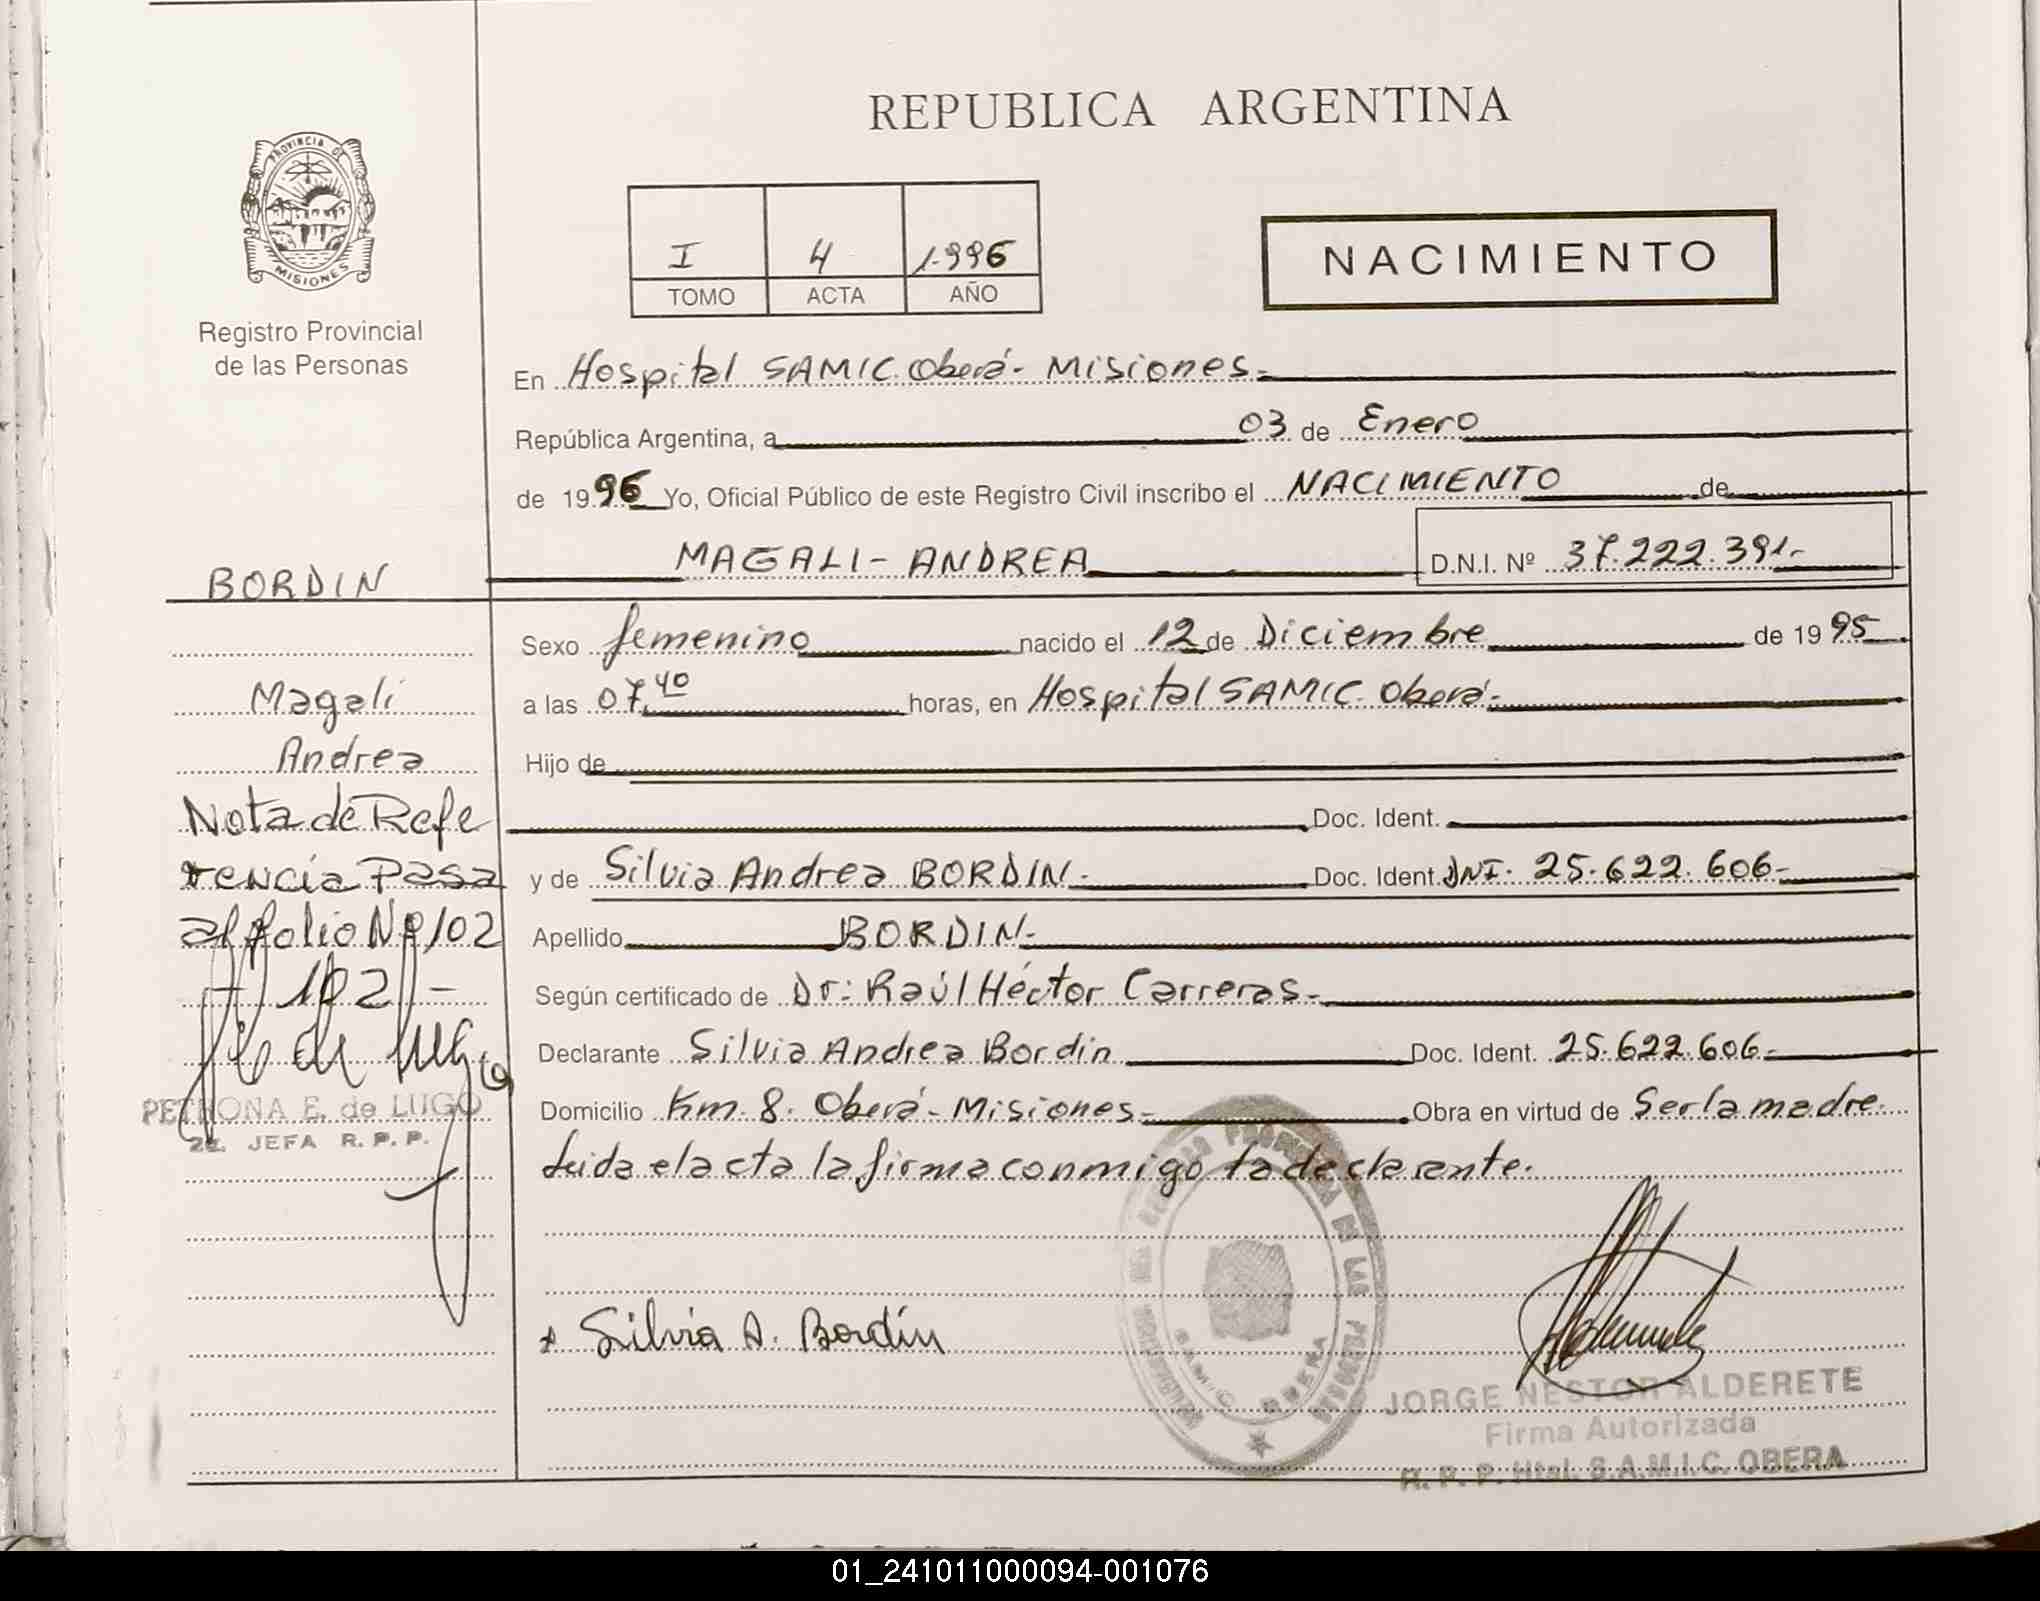 REPUBLICA ARGENTINA
PROVINCIA DE
MISIONES
Registro Provincial
de las Personas
I 4 1996
TOMO ACTA AÑO
NACIMIENTO
En Hospital SAMIC. Oberá - Misiones.-
República Argentina, a 03 de Enero
de 1996 Yo, Oficial Público de este Registro Civil inscribo el NACIMIENTO de
MAGALI - ANDREA D.N.I. Nº 37.222.391.-
BORDIN
Sexo femenino nacido el 12 de Diciembre de 1995
a las 07,40 horas, en Hospital SAMIC. Oberá.-
Hijo de
Doc. Ident.
y de Silvia Andrea BORDIN.- Doc. Ident. DNI. 25.622.606.-
Apellido BORDIN.-
Según certificado de Dr: Raúl Héctor Carreras.-
Declarante Silvia Andrea Bordin Doc. Ident. 25.622.606.-
Domicilio Km. 8. Oberá - Misiones.- Obra en virtud de Ser la madre.
Leida el acta la firma conmigo la declarante.
Silvia A. Bordín
JORGE NESTOR ALDERETE
Firma Autorizada
R. P. P. Htal. S.A.M.I.C. OBERA
Magali
Andrea
Nota de Refe
rencia Pasa
al folio Nº 102
- 102 -
PETRONA E. de LUGO
2a. JEFA R. P. P.
01_241011000094-001076